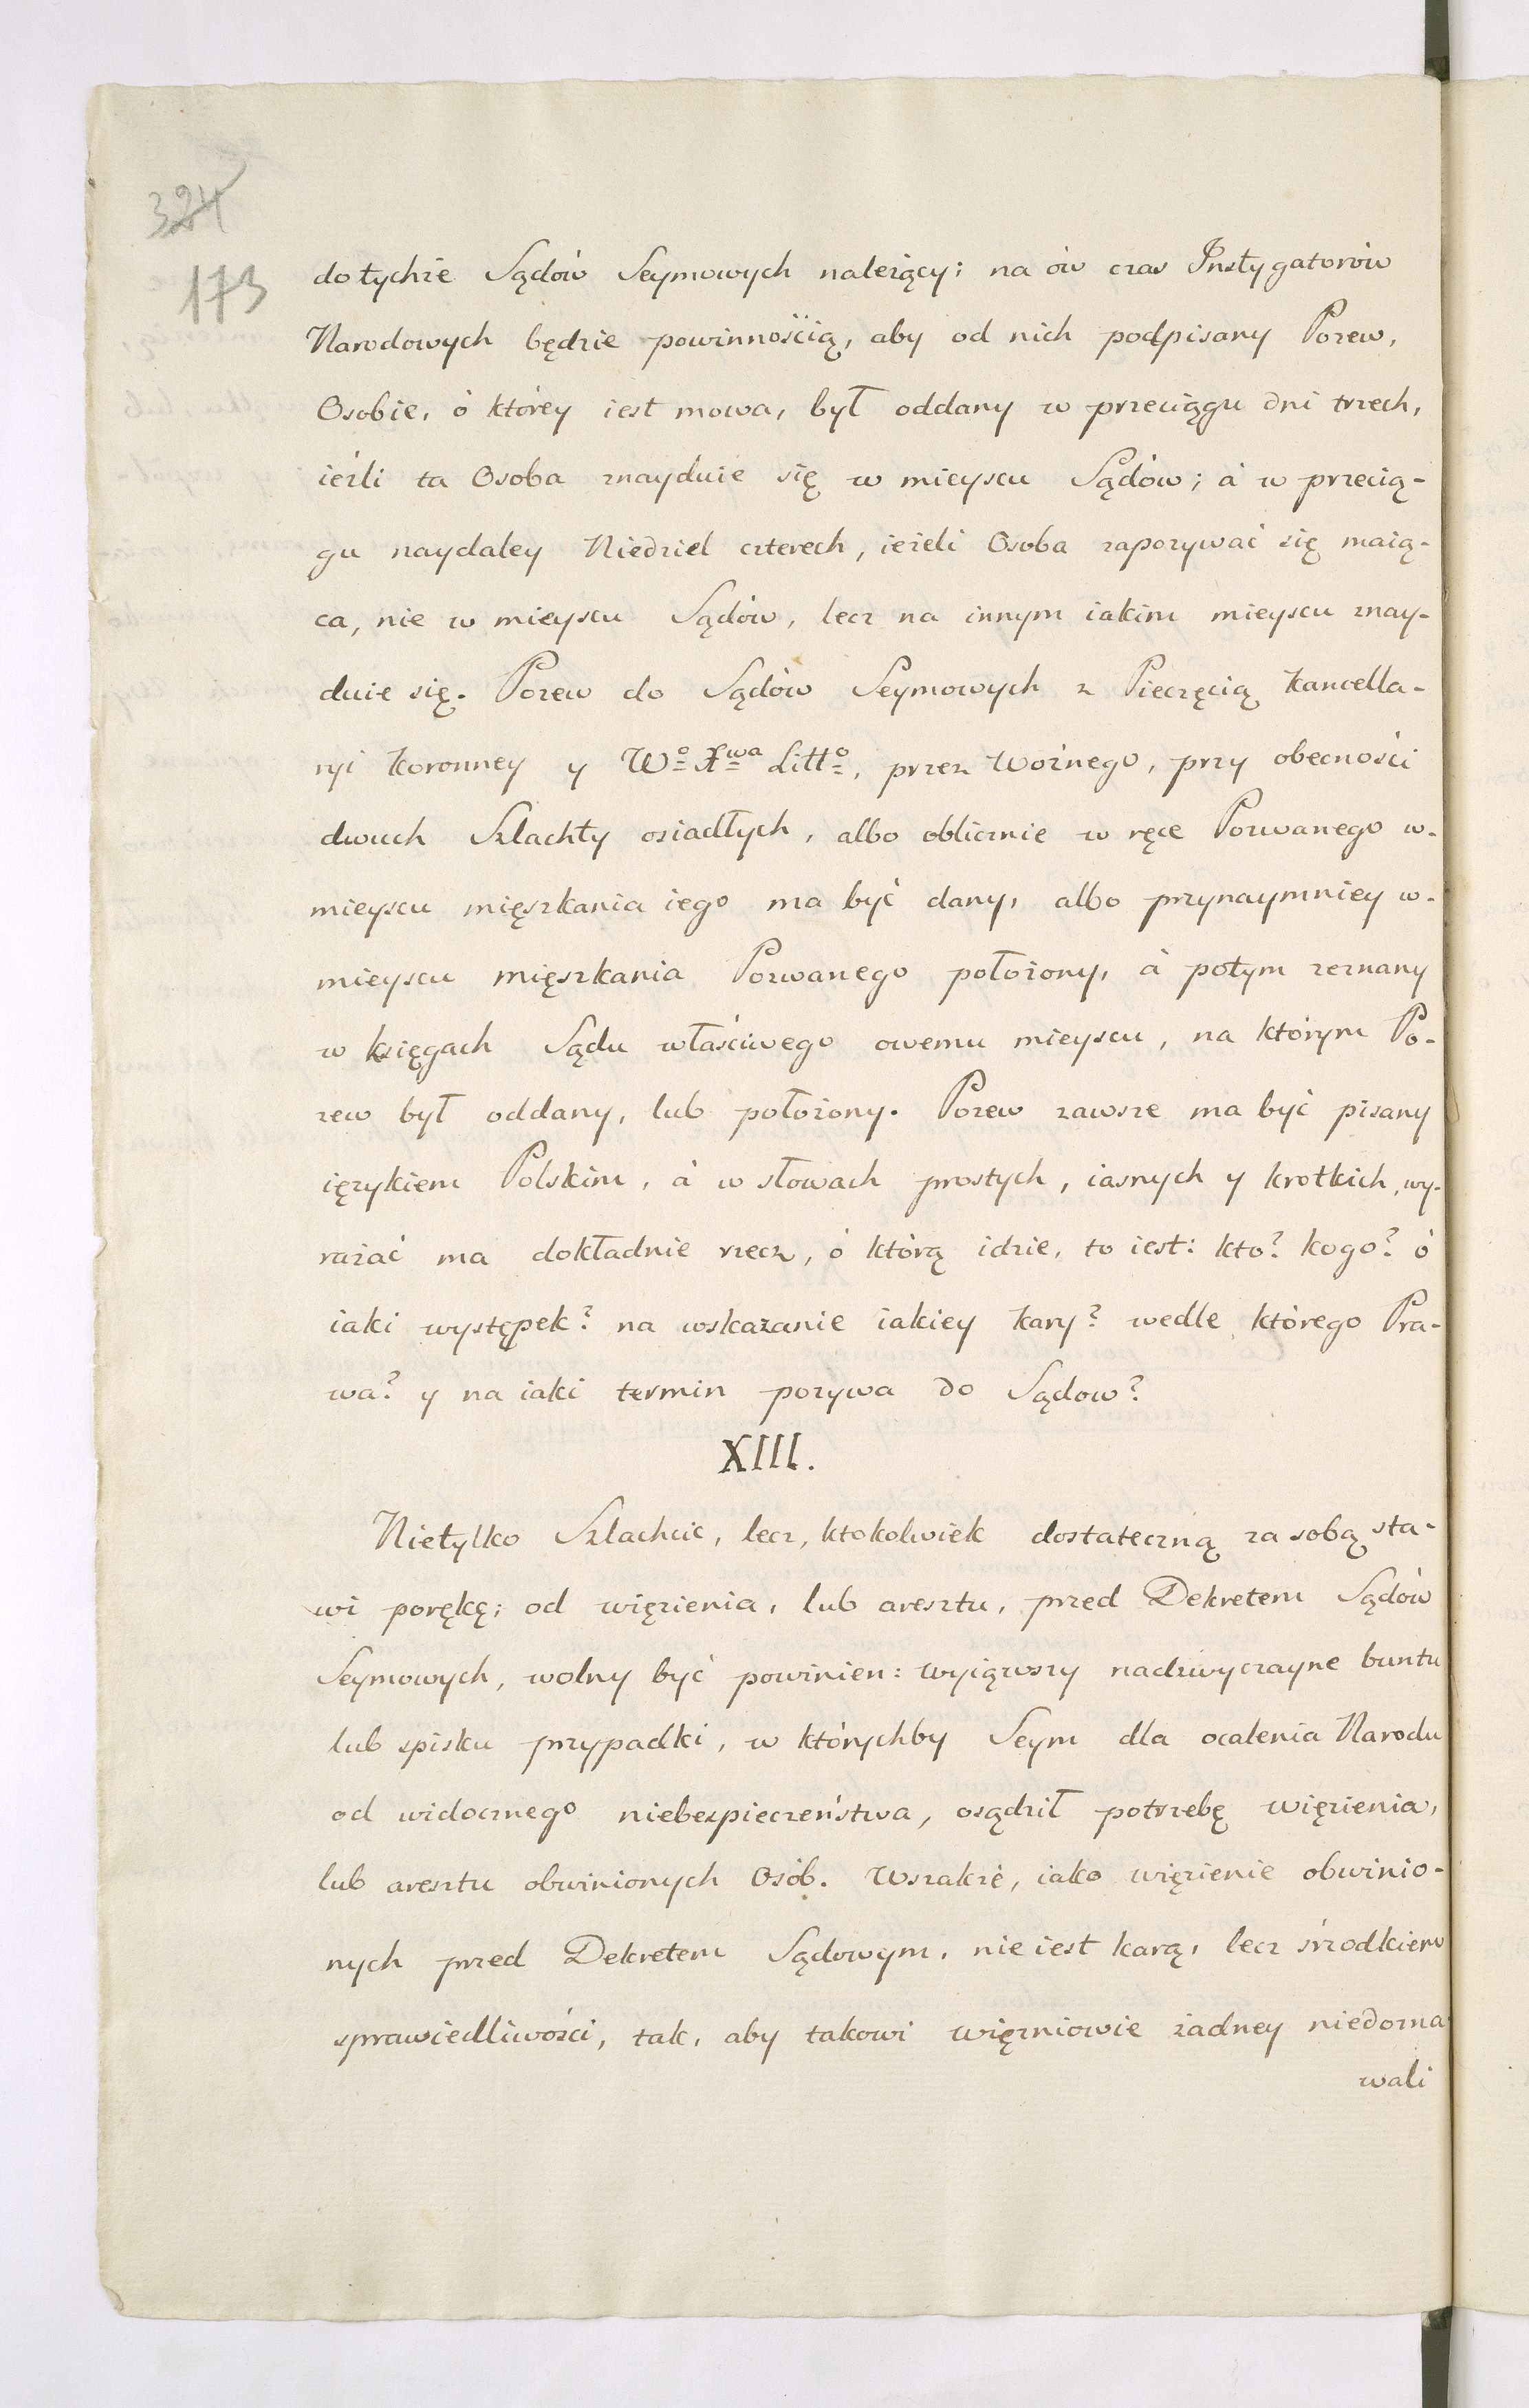 324
173
do tychże Sądów Seymowych należący; na ów czas Instygatorów
Narodowych będzie powinnością, aby od nich podpisany Pozew,
Osobie, ó którey iest mowa, był oddany w przeciągu dni trzech,
ieźli ta Osoba znayduie się w mieyscu Sądów; á w przecią-
gu naydaley Niedziel czterech, ieżeli Osoba zapozywać się maią-
ca, nie w mieyscu Sądów, lecz na innym iakim mieyscu znay-
duie się. Pozew do Sądów Seymowych z Pieczęcią Kancella-
ryi Koronney y Wº Xwa Littº, przez Woźnego, przy obecności
dwuch Szlachty osiadłych, albo oblicznie w ręce Pozwanego w-
mieyscu mięszkania iego ma być dany, albo przynaymniey w-
mieyscu mięszkania Pozwanego położony, á potym zeznany
w księgach Sądu właściwego owemu mieyscu, na którym Po-
zew był oddany, lub położony. Pozew zawsze ma być pisany
ięzykiem Polskim, á w słowach prostych, iasnych y krotkich, wy-
rażać ma dokładnie rzecz, ó którą idzie, to iest: kto? kogo? ó
iaki występek? na wskazanie iakiey kary? wedle którego Pra-
wa? y na iaki termin pozywa do Sądow?
XIII.
Nietylko Szlachcic, lecz, ktokolwiek dostateczną za sobą sta-
wi porękę; od więzienia, lub aresztu, przed Dekretem Sądów
Seymowych, wolny być powinien: wyiąwszy nadzwyczayne buntu
lub spisku przypadki, w którychby Seym dla ocalenia Narodu
od widocznego niebezpieczeństwa, osądził potrzebę więzienia,
lub aresztu obwinionych Osób. Wszakże, iako więzienie obwinio-
nych przed Dekretem Sądowym, nie iest karą, lecz śrzodkiem
sprawiedliwości, tak, aby takowi więzniowie żadney niedozna
wali